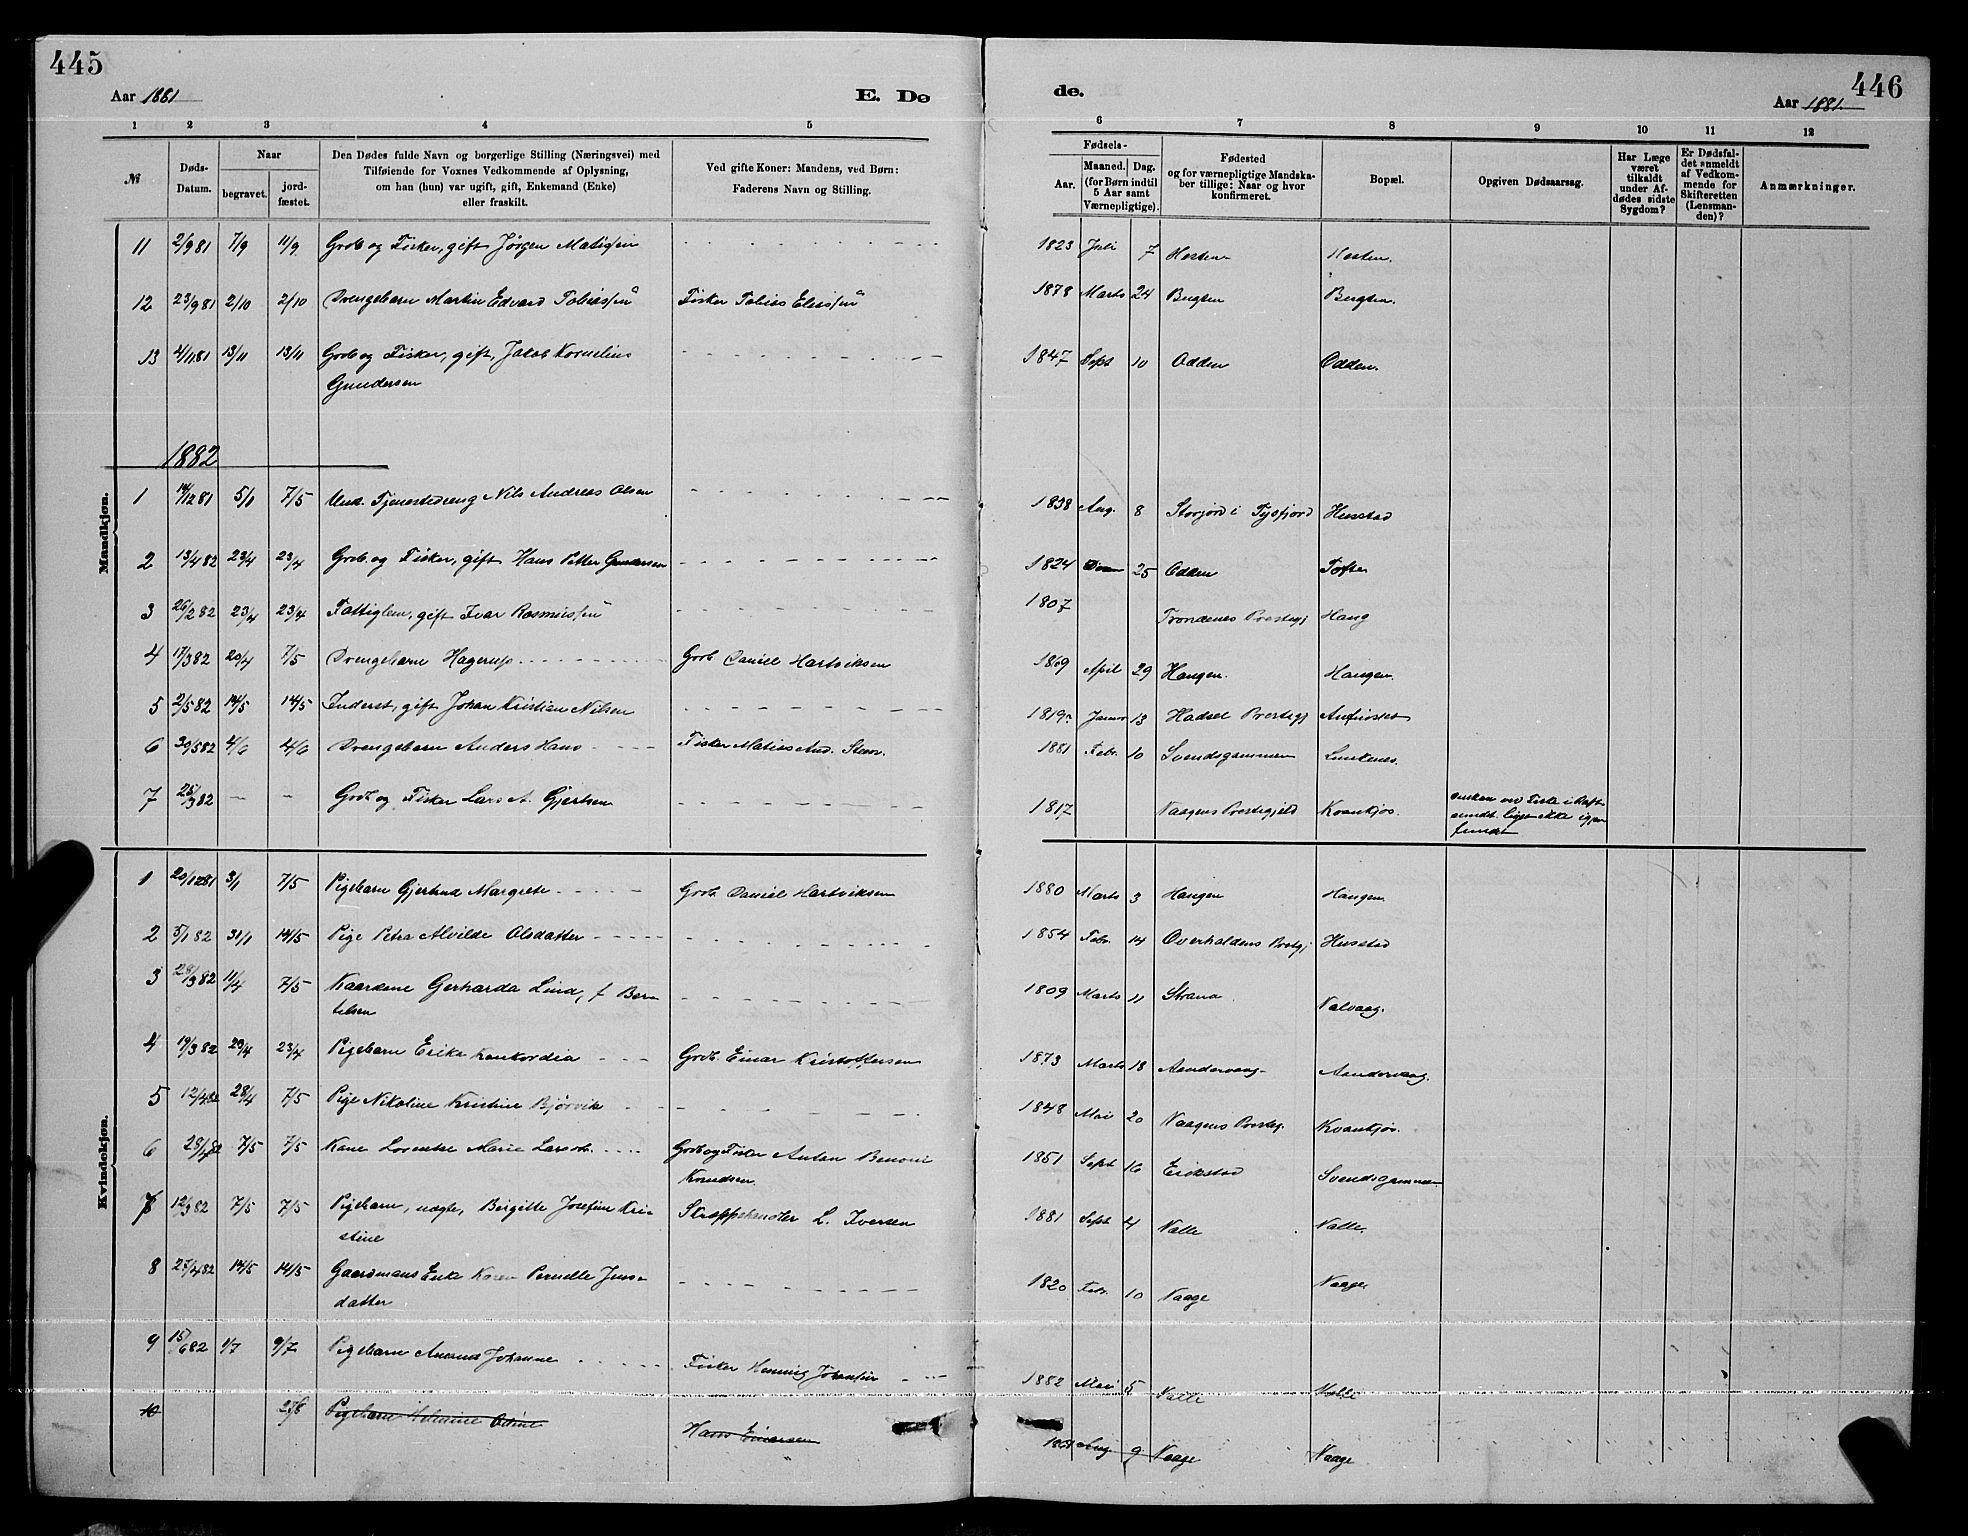 445
446
Aar 1881
E. Dø
de.
Aar 1881.
1 2 3 4 5 6 7 8 9 10 11 12
№
Døds-
Datum.
Naar
begravet.
jord-
fæstet.
Den Dødes fulde Navn og borgerlige Stilling (Næringsvei) med
Tilføiende for Voxnes Vedkommende af Oplysning,
om han (hun) var ugift, gift, Enkemand (Enke)
eller fraskilt.
Ved gifte Koner: Mandens, ved Børn:
Faderens Navn og Stilling.
Fødsels-
Aar.
Maaned. Dag.
(for Børn indtil
5 Aar samt
Værnepligtige).
Fødested
og for værnepligtige Mandska-
ber tillige: Naar og hvor
konfirmeret.
Bopæl.
Opgiven Dødsaarsag.
Har Læge
været
tilkaldt
under Af-
dødes sidste
Sygdom?
Er Dødsfal-
det anmeldt
af Vedkom-
mende for
Skifteretten
(Lensman-
den)?
Anmærkninger.
11 2/9 81 7/9 11/9 Grdb og Fisker, gift Jörgen Matissen 1823 Juli 7 Hesten Hesten.
12 23/9 81 2/10 2/10 Drengebarn Martin Edvard Tobiassen Fisker Tobias Eliassen 1878 Marts 24 Bugten Bugten.
13 4/11 81 13/11 13/11 Grdb og Fisker, gift, Jakob Kornelius 1847 Sept 10 Odden Odden.
Gundersen
1882
Mandkjøn.
1 14/12 81 5/1 7/5 Unk. Tjenestedreng Nils Andreas Olsen 1838 Aug. 8 Storjord i Tysfjord Husstad
2 13/4 82 23/4 23/4 Grdb. og Fisker, gift Hans Petter Gundersen 1824 25 Odden Tofte
3 26/2 82 23/4 23/4 Fattiglem, gift Ivar Rasmussen 1807 Trondenes Prestegj Haug
4 17/3 82 20/4 7/5 Drengebarn Hagerup Grdb. Daniel Hartviksen 1869 April 29 Haugen. Haugen.
5 2/5 82 14/5 14/5 Inderst, gift Johan Kristian Nilsen 1819 Januar 13 Hadsel Prestegj
6 30/5 82 4/6 4/6 Drengebarn Anders Hans Fisker Matias And. 1881 Febr. 10 Svendsgammen Lunkenes.
7 28/3 82 - - Grdb og Fisker Lars A. Gjertsen 1817 Vaagens Prestegjeld Kvankjos
ved Fiske i Raft-
sundet. Liget ikke igjen
fundet
Kvindekjøn.
1 20/12 81 3/1 7/5 Pigebarn Gjertrud Margrete Grdb. Daniel Hartviksen 1880 Marts 3 Haugen Haugen.
2 5/1 82 31/1 14/5 Pige Petra Alvilde Olsdatter 1854 Febr. 14 Overhaldens Prestgj Husstad
3 28/3 82 11/4 7/5 Kaarkone Gerharda Lind, f Bern 1809 Marts 11 Strand Valvaag.
telsen
4 19/3 82 23/4 23/4 Pigebarn Erika Konkordia Grdb. Einar Kristoffersen 1873 Marts 18 Aandervaag Aandervaag.
5 12/4 82 28/4 7/5 Pige Nikoline Kristine Bjørvik 1848 Mai 20 Vaagens Presteg. Kvankjos.
6 28/4 82 7/5 7/5 Kone Lorentse Marie Larsdt. Grdb og Fisker Anton Benoni 1851 Sept 16 Erikstad Svendsgammen
Knudsen.
7 12/3 82 7/5 7/5 Pigebarn, uægte, Birgitte Josefine Kri- Skræppehandler L. Iversen 1881 Sept 4 Valle Valle.
stine
8 27/4 82 14/5 14/5 Gaardmans Enke Karen Pernelle Jens- 1820 Febr. 10 Vaage Vaage.
datter
9 15/6 82 1/7 9/7 Pigebarn Johanne Fisker Henning Johansen 1882 Mai 5 Valle Valle
10 Pigebarn Odine Hans Einarsen Aug. 9 Vaage Vaage